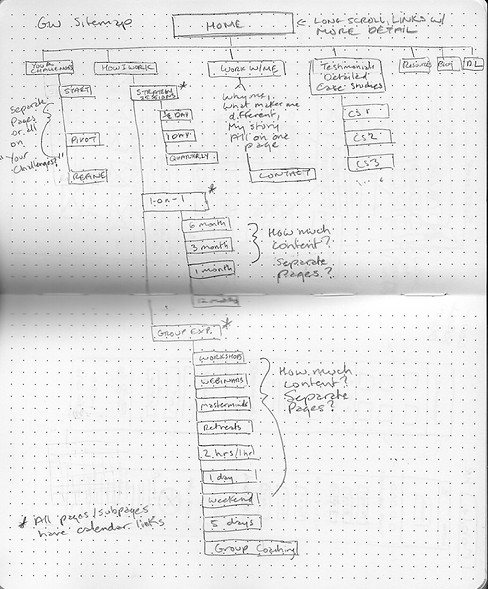 GW Sitemap
HOME
← LONG SCROLL, LINKS W/
MORE DETAIL
YOUR
CHALLENGES
HOW I WORK
WORK W/ME
Testimonials
Detailed
Case Studies
Resources
Blog
START
PIVOT
REFINE
Separate
Pages
or all
on
"Your
Challenges"
STRATEGY
SESSIONS
*
1/2 DAY
1 DAY
QUARTERLY
Why me,
What makes me
different,
My story
All on one
page
CONTACT
CS1
CS2
CS3
1-on-1
*
6 month
3 month
1 month
12 month
How much
content?
Separate
Pages?
GROUP EXP.
*
WORKSHOPS
WEBINARS
masterminds
Retreats
2 hrs/1hr
1 day
weekend
5 days
Group Coaching
How much
content?
Separate
Pages?
* All pages/subpages
have calendar links